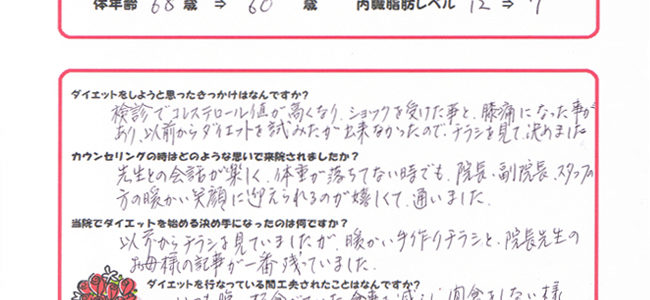 体年齢 68 歳 ⇒ 60 歳 内臓脂肪レベル 12 ⇒ 7
ダイエットをしようと思ったきっかけはなんですか?
検診でコレステロール値が高くなり、ショックを受けた事と、膝痛になった事が
あり、以前からダイエットを試みたが出来なかったので、チラシを見て決めました
カウンセリングの時はどのような思いで来院されましたか?
先生との会話が楽しく、体重が落ちてない時でも、院長・副院長、スタッフの
方の暖かい笑顔に迎えられるのが嬉しくて、通いました。
当院でダイエットを始める決め手になったのは何ですか?
以前からチラシを見ていましたが、暖かい手作りチラシと、院長先生の
お母様の記事が一番残っていました。
ダイエットを行なっている間工夫されたことはなんですか?